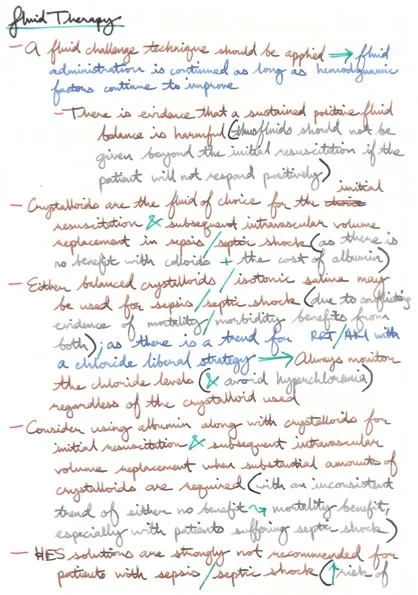 Fluid Therapy
- A fluid challenge technique should be applied → fluid
administration is continued as long as hemodynamic
factors continue to improve
- There is evidence that a sustained positive fluid
balance is harmful (thus fluids should not be
given beyond the initial resuscitation if the
patient will not respond positively)
- Crystalloids are the fluid of choice for the initial
resuscitation & subsequent intravascular volume
replacement in sepsis/septic shock (as there is
no benefit with colloids + the cost of albumin)
- Either balanced crystalloids / isotonic saline may
be used for sepsis/septic shock (due to conflicting
evidence of mortality/morbidity benefits from
both); as there is a trend for RRT/AKI with
a chloride liberal strategy → Always monitor
the chloride levels (& avoid hyperchloremia)
regardless of the crystalloid used
- Consider using albumin along with crystalloids for
initial resuscitation & subsequent intravascular
volume replacement when substantial amounts of
crystalloids are required (with an inconsistent
trend of either no benefit ⤳ mortality benefit,
especially with patients suffering septic shock)
- HES solutions are strongly not recommended for
patients with sepsis/septic shock (↑risk of